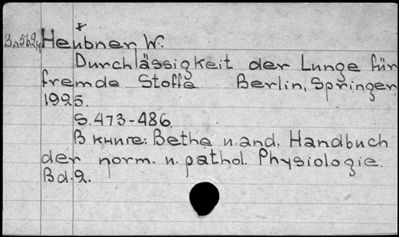 Heubner W.
Durchlässigkeit der Lunge für
fremde Stoffe. Berlin, Springer,
1925.
S. 473-486
В книге: Bethe u. and. Handbuch
der norm. u. pathol. Physiologie.
Bd. 2.